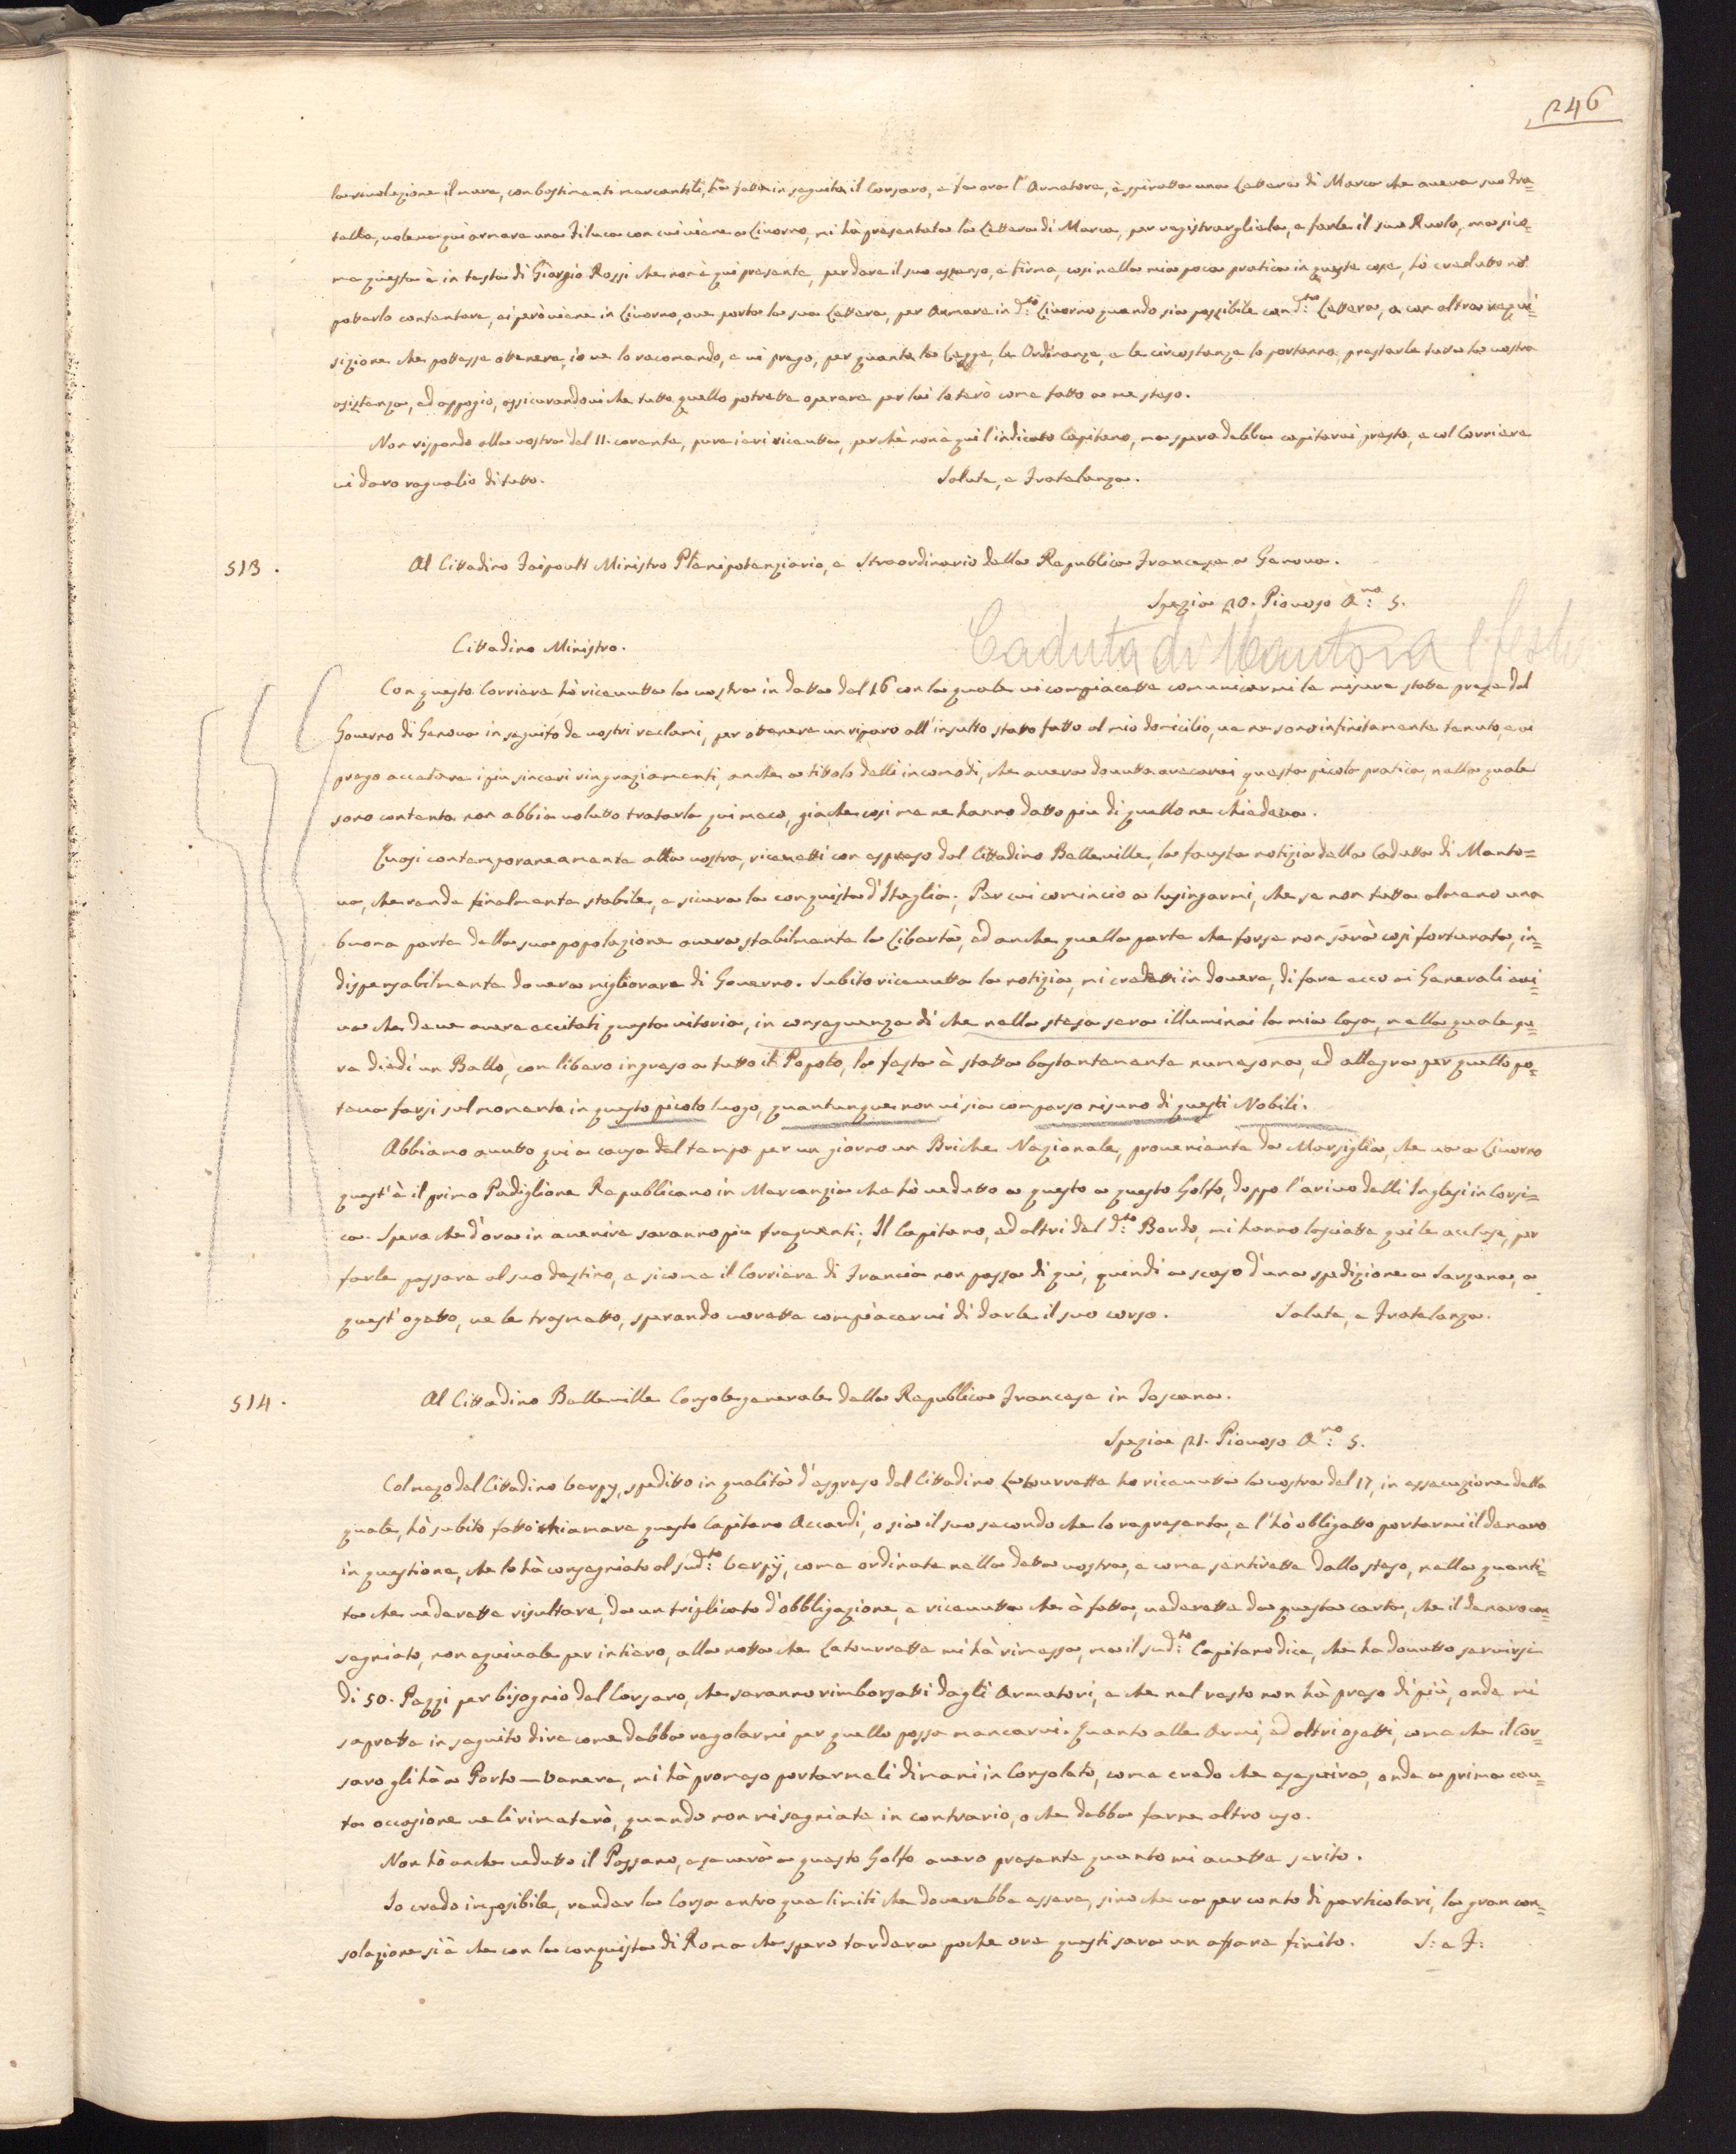 246
la rivoluzione il mare, con bastimenti mercantili, hà fatto in seguito il Corsaro, e fà ora l'Armatore, è spiratta una Lettera di Marca che aveva suo Fra=
tello, voleva qui armare una Filuca con cui viene a Livorno, mi hà presentata la Lettera di Marca, per registrargliela, e farle il suo Ruolo, ma sico=
me questa è in testa di Giorgio Rossi che non è qui presente, per dare il suo assenso, e firma, cosi nella mia poca pratica in queste cose, hò creduto nõ
pottarlo contentare, ei però viene in Livorno, ove porta la sua Lettera, per Armare in d:to Livorno quando sia possibile con d:ta Lettera, o con altra requi=
sizione che pottesse ottenere, io ve lo racomando, e vi prego, per quanto la Legge, le Ordinanze, e le circostanze lo portanno, prestarle tutta la vostra
asistenza, ed appogio, assicurandovi che tutto quello potrette operare per lui lo terò come fatto a me steso.
Non rispondo alla vostra del 11. corente, pure ieri ricevutta, perchè non è qui l'indicato Capitano, ma spero debba capitarvi presto, e col Corriere
vi daro ragualio di tutto. Salute, e Fratelanza.
513. Al Cittadino Faipoult Ministro Plenipotenziario, e Straordinario della Republica Francese a Genova.
Spezia 20. Piovoso A:no 5.
Caduta di Mantova e festa
Cittadino Ministro.
Con questo Corriere hò ricevutta la vostra in datta del 16 con la quale vi compiacette comunicarmi le misure statte prese dal
Governo di Genova in seguito de vostri reclami, per ottenere un riparo all'insulto statto fatto al mio domicilio, ve ne sono infinitamente tenuto, e vi
prego accetare i più sinceri ringraziamenti, anche a tittolo delli incomodi, che avera dovutto arecarvi questa picola pratica, nella quale
sono contento non abbia voluto tratarla qui meco, giàche cosi me ne hanno datto più di quello ne chiedeva.
Quasi contemporaneamente alla vostra, ricevetti con espreso dal Cittadino Belleville, la fausta notizia della Cadutta di Manto=
va, che rende finalmente stabile, e sicura la conquista d'Itaglia; Per cui comincio a lusingarmi, che se non tutta almeno una
buona parte della sua popolazione avera stabilmente la Libertà, ed anche quella parte che forse non sarà cosi fortunata, in=
dispensabilmente dovera migliorare di Governo. Subito ricevutta la notizia, mi credetti in dovere, di fare ecco ai Generali evi=
va che deve avere eccitati questa vitoria, in conseguenza di che nella stesa sera illuminai la mia Casa, nella quale pu=
re diedi un Ballo, con libero ingreso a tutto il Popolo, la festa è statta bastantemente numerosa, ed allegra per quello po=
teva farsi sul momento in questo picolo luogo, quantunque non vi sia comparso nisuno di questi Nobili.
Abbiamo avutto qui a causa del tempo per un giorno un Briche Nazionale, proveniente da Marsiglia, che va a Livorno
quest'è il primo Padiglione Republicano in Mercanzia che hò vedutto a questo a questo Golfo, doppo l'arivo delli Inglesi in Corsi=
ca. Spero che d'ora in avenire saranno più frequenti; Il Capitano, ed altri del d:to Bordo, mi hanno lasciatte qui le accluse, per
farle passare al suo destino, e sicome il Corriere di Francia non passa di qui, quindi a scaso d'una spedizione a Sarzana, a
quest'ogetto, ve le trasmetto, sperando vorette compiacervi di darle il suo corso. Salute, e Fratelanza.
514. Al Cittadino Belleville Consolegenerale della Republica Francese in Toscana.
Spezia 21. Piovoso A:no 5.
Col mezo del Cittadino berpy, spedito in qualità d'espreso dal Cittadino Latourrette ho ricevutta la vostra del 17, in essecuzione della
quale, hò subito fatto chiamare questo Capitano Accardi, o sia il suo secondo che lo represente, e l'hò obligatto portarmi il denaro
in questione, che lo hà consegniato al sud:to berpij, come ordinate nella detta vostra, e come sentirette dallo steso, nella quanti=
ta che vederette risultare, da un triplicato d'obbligazione, e ricevutta che à fatta, vederette da questa carta, che il denaro con=
segniato, non equivale per intiero, alla notta che Latourrette mi hà rimessa, ma il sud:to Capitano dice, che ha dovutto servirsi
di 50. Pezzi per bisognio del Corsaro, che saranno rimborsatti dagli Armatori, e che nel resto non hà preso di più, onde mi
saprette in seguito dire come debba regolarmi per quello possa mancarvi. Quanto alle Armi, ed altri ogetti, come che il Cor=
saro gli hà a Porto-Venere, mi hà promeso portarmeli dimani in Consolato, come credo che eseguirà, onde a prima cau=
ta occasione ve li rimeterò, quando non mi segniate in contrario, o che debba farne altro uso.
Non hò anche vedutto il Passano, e se verrà a questo Golfo avero presente quanto mi avette scrito.
Io credo imposibile, render la Corsa entro que limiti che doverebbe essere, sino che va per conto di particolari, la gran con=
solazione si è che con la conquista di Roma che spero tardera poche ore questi sara un affare finito. S: e F: